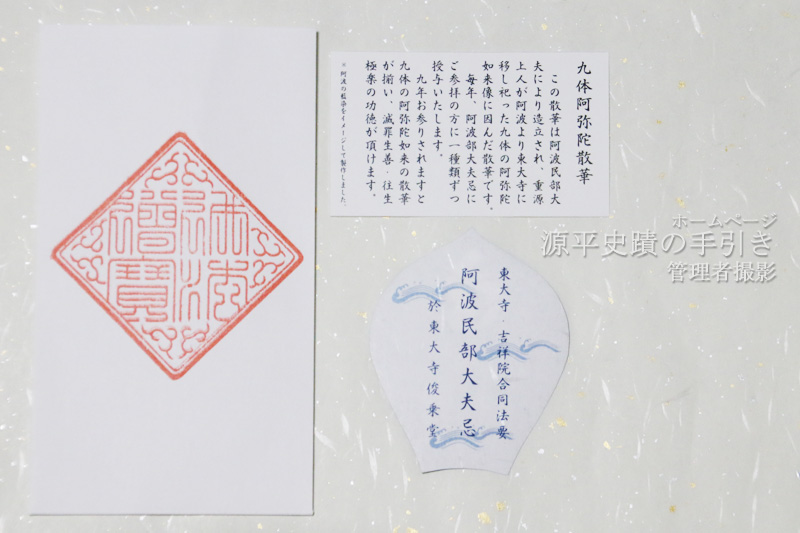 九体阿弥陀散華
この散華は阿波民部大
夫により造立され、重源
上人が阿波より東大寺に
移し祀った九体の阿弥陀
如来像に因んだ散華です。
毎年、阿波民部大夫忌に
ご参拝の方に一種類ずつ
授与いたします。
九年お参りされますと
九体の阿弥陀如来の散華
が揃い、滅罪生善・往生
極楽の功徳が頂けます。
※阿波の藍染をイメージして製作しました。
東大寺・吉祥院合同法要
阿波民部大夫忌
於東大寺俊乗堂
ホームページ
源平史蹟の手引き
管理者撮影